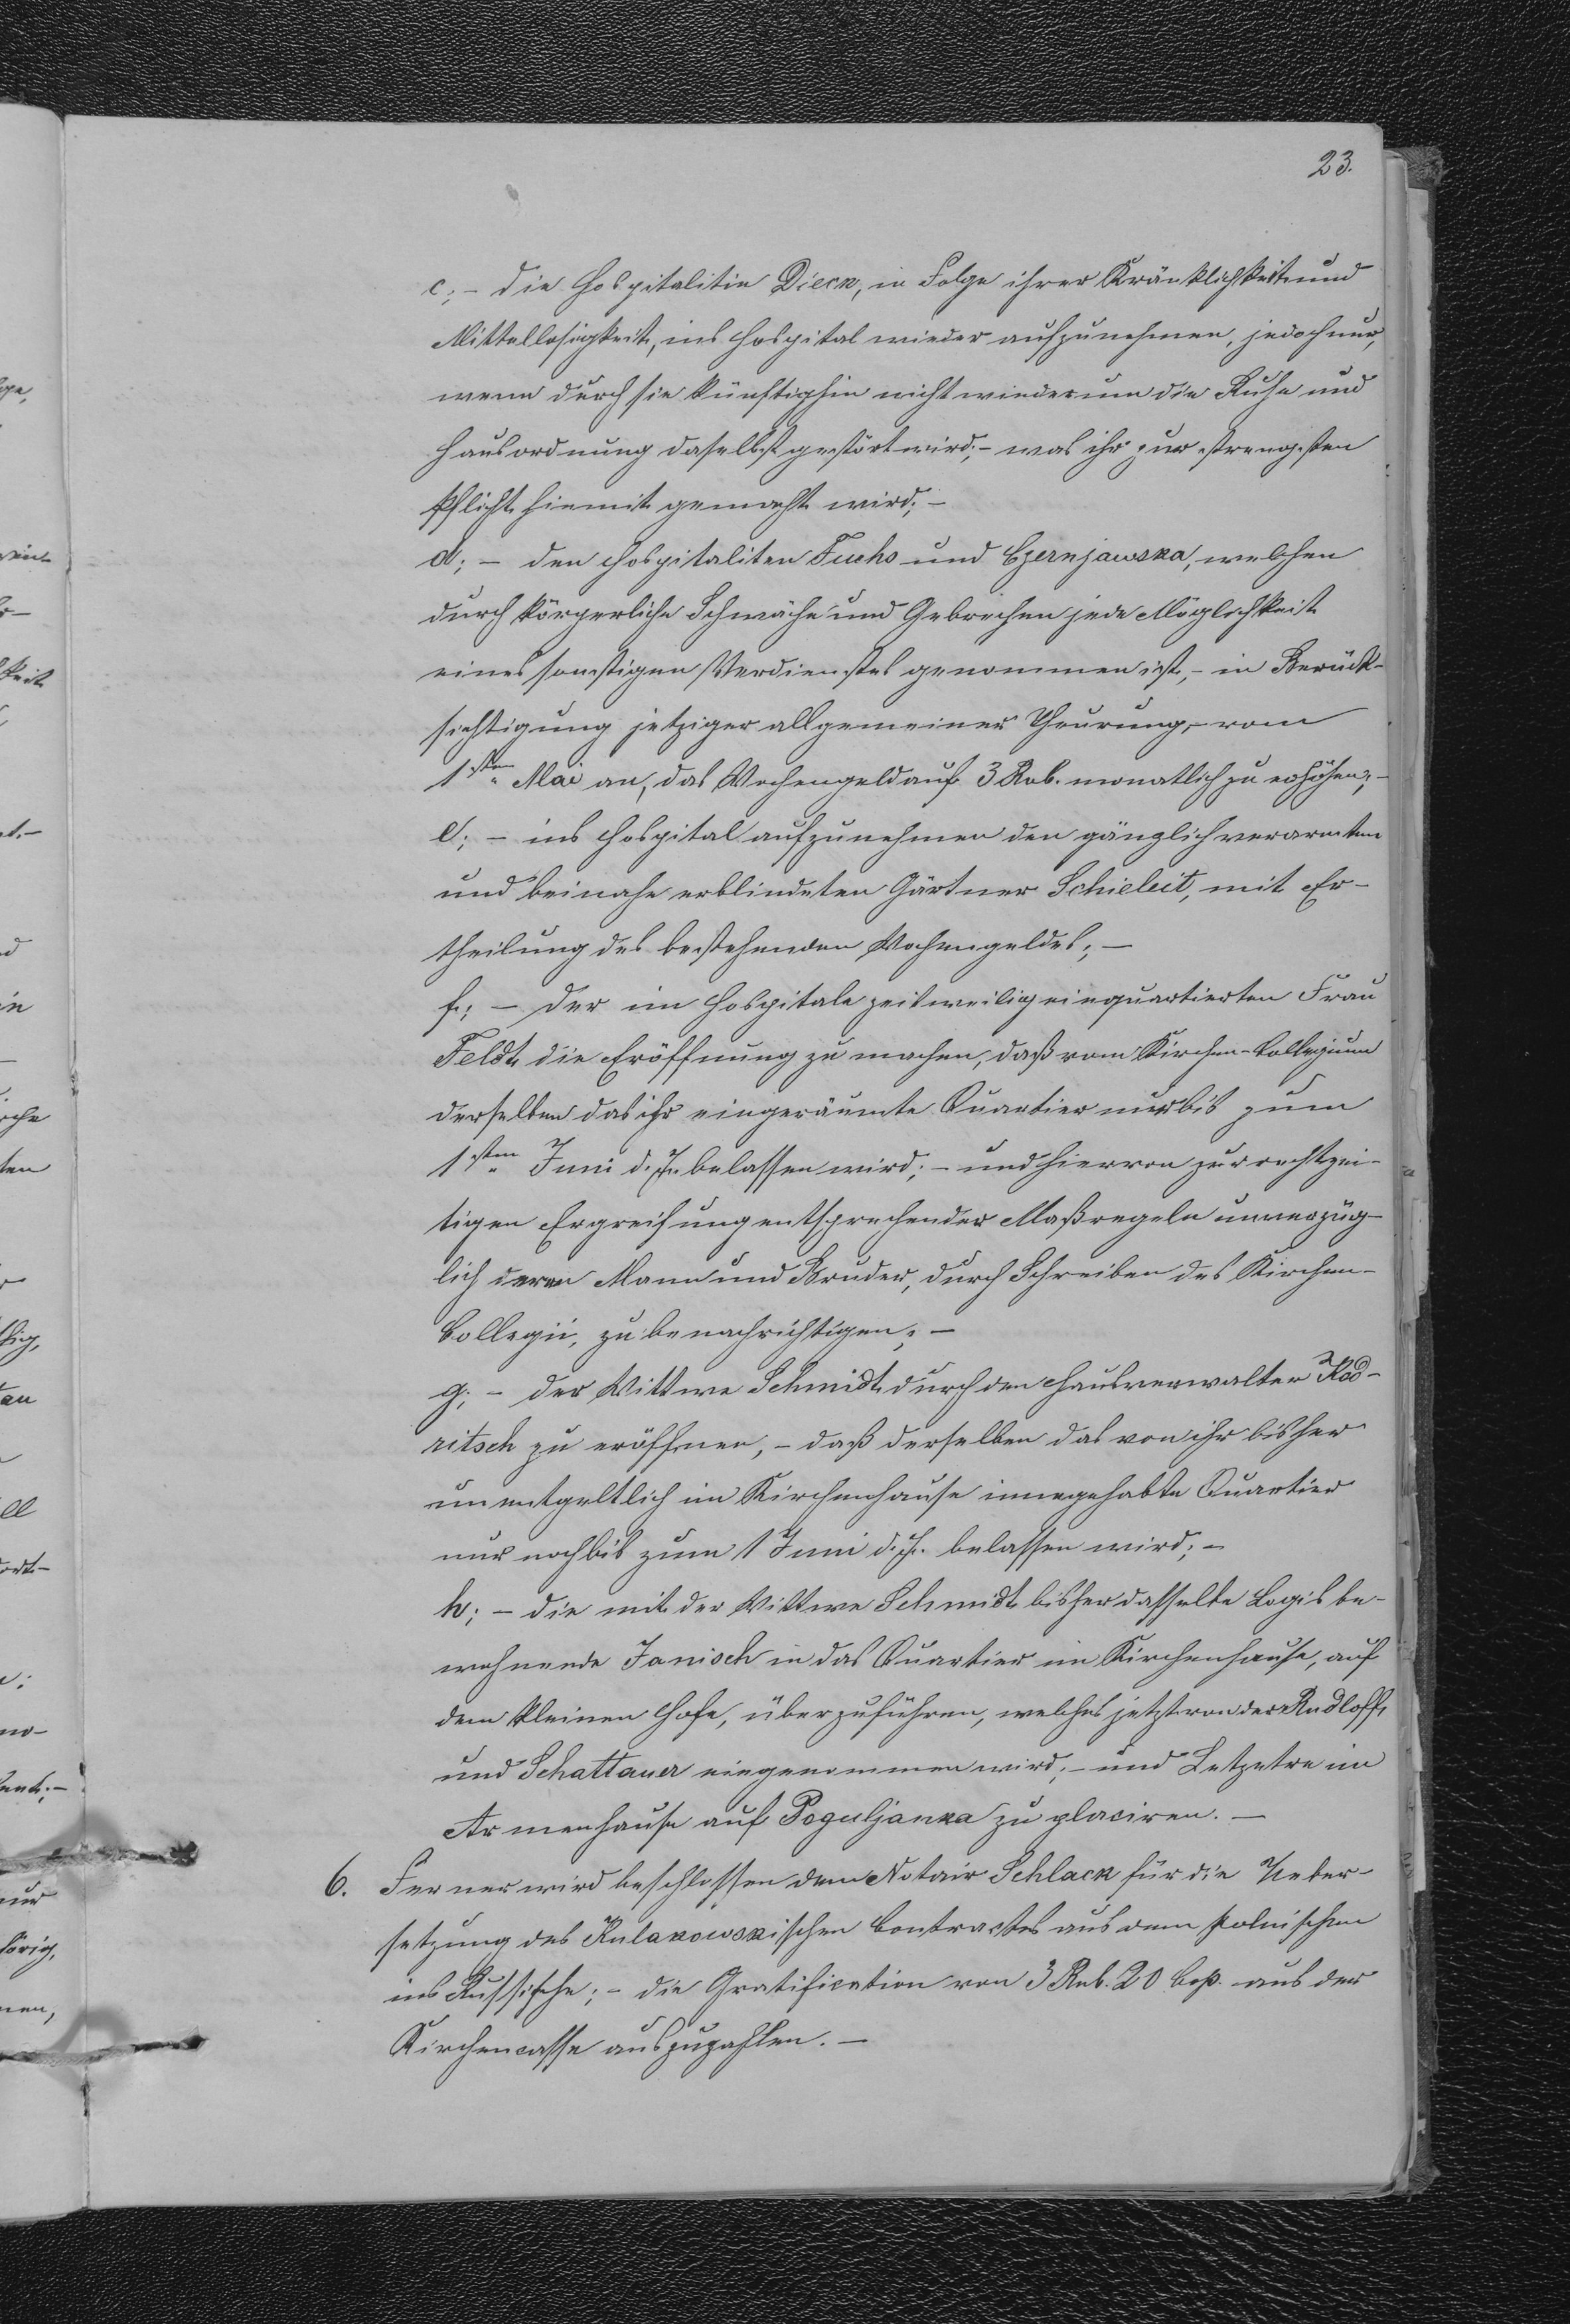 23.
c; – die Hospitalitin Dieck, in Folge ihrer Kränklichkeit und
Mittellosigkeit, ins Hospital wieder aufzunehmen, jedoch nur,
wenn durch sie künftighin nicht wiederum die Ruhe und
Hausordnung daselbst gestört wird; – was ihr zur strengsten
Pflicht hiemit gemacht wird; –
d; – den Hospitaliten Fuchs und Czernjawska, welchen
durch körperliche Schwäche und Gebrechen jede Möglichkeit
eines sonstigen Verdienstes genommen ist, – in Berück-
sichtigung jetziger allgemeiner Theurung, – vom
1sten Mai an, das Wochengeld auf 3 Rub. monatlich zu erhöhen; –
e; – ins Hospital aufzunehmen den gänzlich verarmten
und beinahe erblindeten Gärtner Schieleit, mit Er-
theilung des bestehenden Wochengeldes; –
f; – der im Hospitale zeitweilig einquartierten Frau
Feldt die Eröffnung zu machen, daß vom Kirchen-Collegium
derselben das ihr eingeräumte Quartier nur bis zum
1sten Juni d. J. belassen wird; – und hiervon zur rechtzei-
tigen Ergreifung entsprechender Maßregeln unverzüg-
lich deren Mann und Bruder, durch Schreiben des Kirchen-
Collegii, zu benachrichtigen; –
g; – der Wittwe Schmidt durch den Hausverwalter Kod-
ritsch zu eröffnen, – daß derselben das von ihr bisher
unentgeltlich im Kirchenhause innegehabte Quartier
nur noch bis zum 1 Juni d. J. belassen wird; –
h; – die mit der Wittwe Schmidt bisher dasselbe Logis be-
wohnende Janisch in das Quartier im Kirchenhause, auf
dem kleinen Hofe, überzuführen, welches jetzt von der Rudloff,
und Schattauer eingenommen wird; – und Letztre im
Armenhause auf Poguljanka zu placiren. –
6. Ferner wird beschlossen dem Notair Schlack für die Ueber-
setzung des Kulakowskischen Contractes aus dem Polnischen
ins Russische; – die Gratification von 3 Rub. 20 Cop. aus der
Kirchencasse auszuzahlen. –